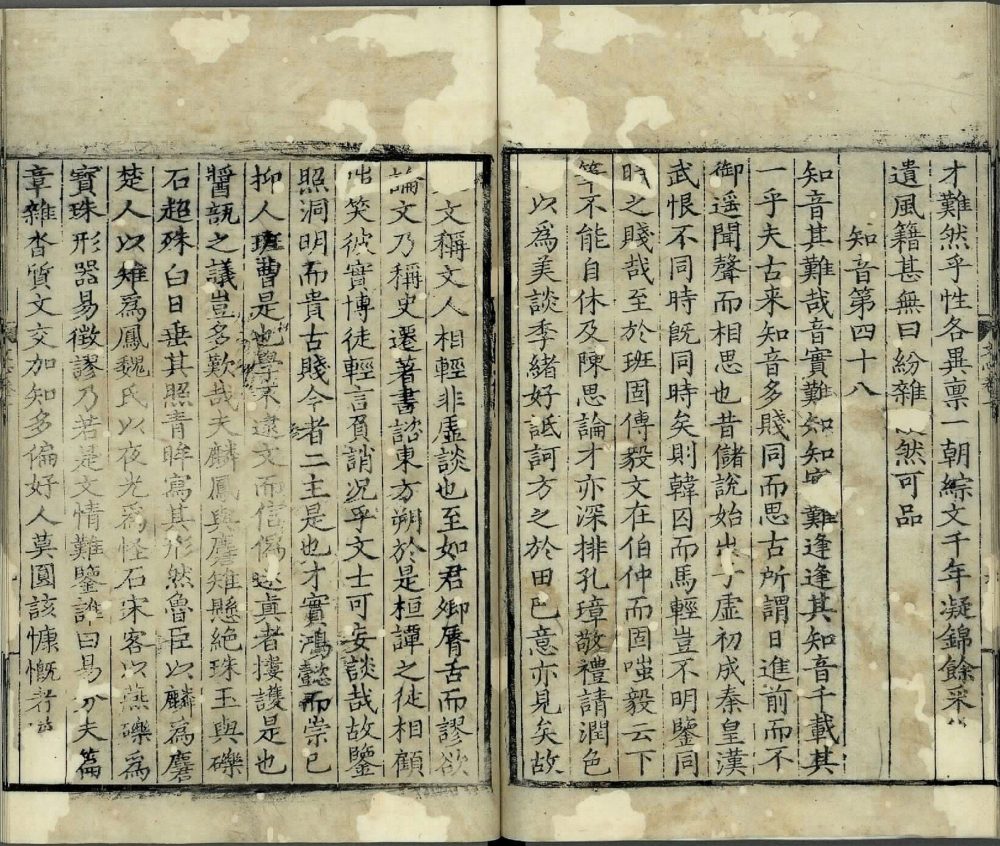 才難然乎性各異稟一朝綜文千年凝錦餘采
遺風籍甚無曰紛雜然可品
知音第四十八
知音其難哉音實難知知難逢逢其知音千載其
一乎夫古來知音多賤同而思古所謂日進前而不
御遥聞聲而相思也昔儲說始出子虛初成秦皇漢
武恨不同時既同時矣則韓囚而馬輕豈不明鑒同
時之賤哉至於班固傅毅文在伯仲而固嗤毅云下
筆不能自休及陳思論才亦深排孔璋敬禮請潤色
以為美談季緒好詆訶方之於田巴意亦見矣故
文稱文人相輕非虛談也至如君卿脣舌而謬欲
論文乃稱史遷著書諮東方朔於是桓譚之徒相顧
嗤笑彼實博徒輕言負誚况乎文士可妄談哉故鑒
照洞明而貴古賤今者二主是也才實鴻懿而崇己
抑人班曹是也學不逮文而信偽迷真者摟護是也
醬瓿之議豈多歎哉夫麟鳳與麏雉懸絕珠玉與礫
石超殊白日垂其照青眸寫其形然魯臣以麟為麏
楚人以雉為鳳魏氏以夜光為怪石宋客以燕礫為
寶珠形器易徵謬乃若是文情難鑒誰曰易分夫篇
章雜沓質文交加知多偏好人莫圓該慷慨者